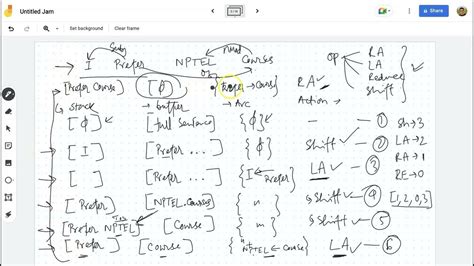 Untitled Jam
Set background
Clear frame
Subj nmod
I Prefer NPTEL Courses
[Prefer Course] [ϕ] {Prefer → Cours}
stack → buffer → Arc
[ϕ] [full Sentence] {ϕ}
[I] [Prefer ...] {ϕ}
[ ] [Prefer ...] {I ← Prefer}
[Prefer] [NPTEL Courses] { " }
[Prefer NPTEL] [Course] { " }
[Prefer] [Course] {NPTEL ← Course}
OP RA
LA
Reduce
Shift
RA ✓
Action →
— ①
Shift ✓ — ②
LA ✓ — ③
Shift ✓ — ④
Shift ✓ — ⑤
LA ✓ — ⑥
Sh → 3
LA → 2
RA → 1
RE → 0
[1, 2, 0, 3]